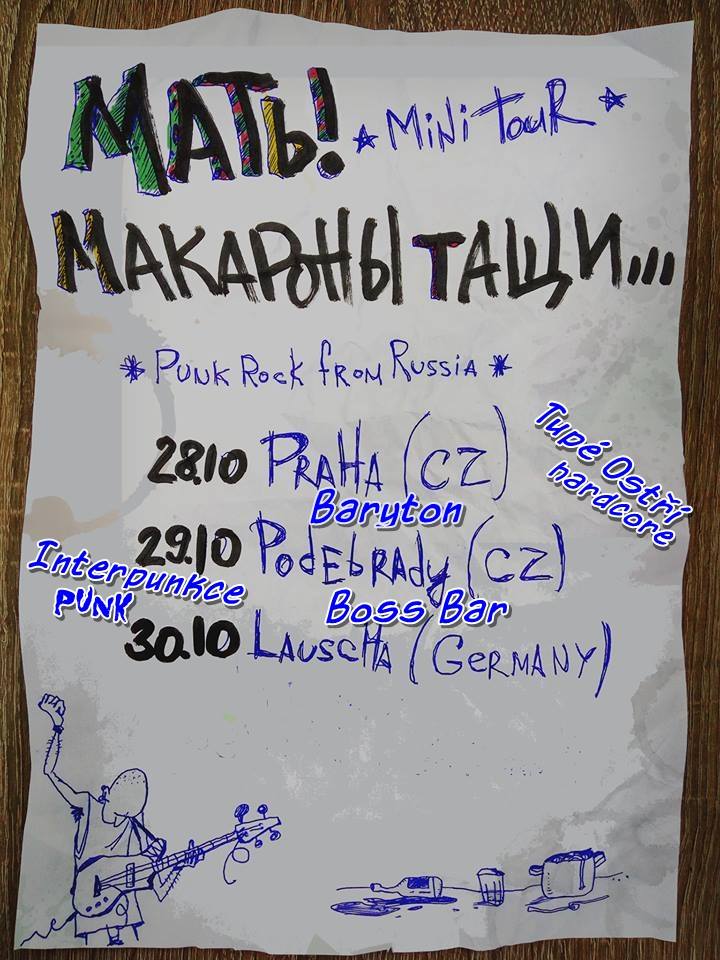 МАТЬ! ★ MiNi TouR ★
МАКАРОНЫ ТАЩИ...
* PUNK ROCK fROM RUSSIA *
28.10 PRAHA (CZ)
Tupé Ostří
hardcore
Baryton
29.10 PodEbRAdy (CZ)
Interpunkce
PUNK
Boss Bar
30.10 LAUSCHA (GERMANY)